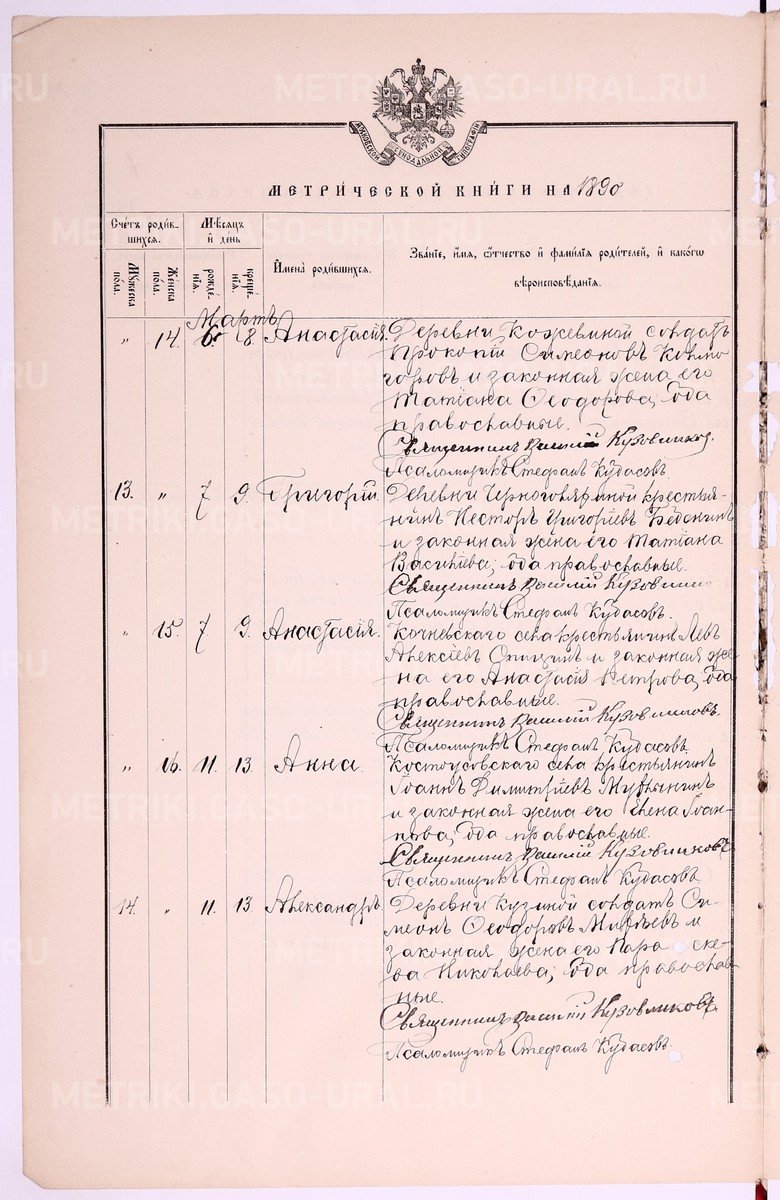 METRIKI.GASO-URAL.RU
МОСКОВСКОЙ СѴНОДАЛЬНОЙ ТИПОГРАФІИ
МЕТРИ́ЧЕСКОЙ КНИ́ГИ НА 1890
Сче́тъ роди́в-
шихся.
Му́жеска
пола.
Же́нска
пола.
Мѣ́сяцъ
и̂ де́нь
рожде́-
нїѧ.
креще́-
нїѧ.
И̂мена̀ роди́вшихся.
Зва́нїе, и́мѧ, ѻ҆́тчество и̂ фами́лїѧ роди́телей, и̂ како́гѡ
вѣроисповѣ́данїѧ.
Мартъ
„ 14. 6. 8 Анастасія. Деревни Кожевиной солдатъ
Прокопій Симеоновъ Колмо-
горовъ и законная жена его
Татіана Ѳеодорова, оба
православные.
Священникъ Василій Кузовников.
Псаломщикъ Стефанъ Кудасовъ.
13. „ 7 9. Григорій. Деревни Черноговляниной крестья-
нинъ Несторъ Григоріевъ
и законная жена его Татіана
Василіева, оба православные.
Священникъ Василій
Псаломщикъ Стефанъ Кудасовъ.
„ 15. 7 9. Анастасія. Кочневскаго села крестьянинъ Левъ
Алексіевъ Спицинъ и законная же-
на его Анастасія Петрова, оба
православные.
Священникъ Василій Кузовниковъ.
Псаломщикъ Стефанъ Кудасовъ.
„ 16. 11. 13. Анна. Костоусовскаго села крестьянинъ
Іоаннъ Димитріевъ
и законная жена его Елена Іоан-
нова, оба православные.
Священникъ Василій Кузовниковъ
Псаломщикъ Стефанъ Кудасовъ
14. „ 11. 13. Александръ. Деревни Кузиной солдатъ Си-
меонъ Ѳеодоровъ и
законная жена его Параске-
ва Николаева, оба православ-
ные.
Священникъ Василій Кузовниковъ.
Псаломщикъ Стефанъ Кудасовъ.
METRIKI.GASO-URAL.RU